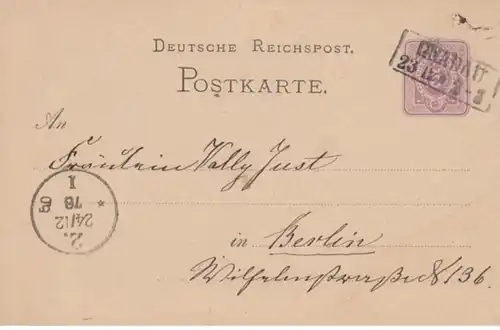 DEUTSCHE REICHSPOST.
POSTKARTE.
An
Fräulein Vally Just
in Berlin
Wilhelmstraße 136.
24/12
78
I